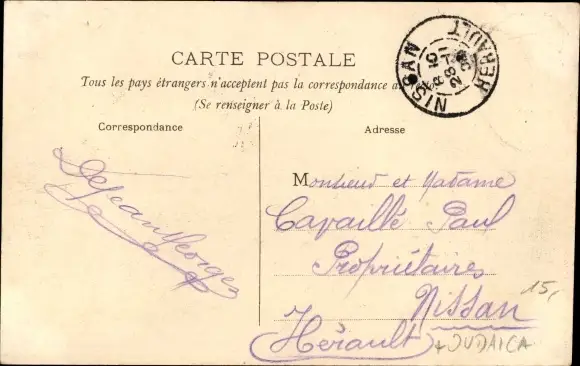 CARTE POSTALE
Tous les pays étrangers n'acceptent pas la correspondance a
(Se renseigner à la Poste)
NISSAN
HERAULT
Correspondance
Adresse
Dejean Georges
Monsieur et Madame
Cavaillé Paul
Propriétaires
Nissan
15,
Hérault
+ JUDAICA